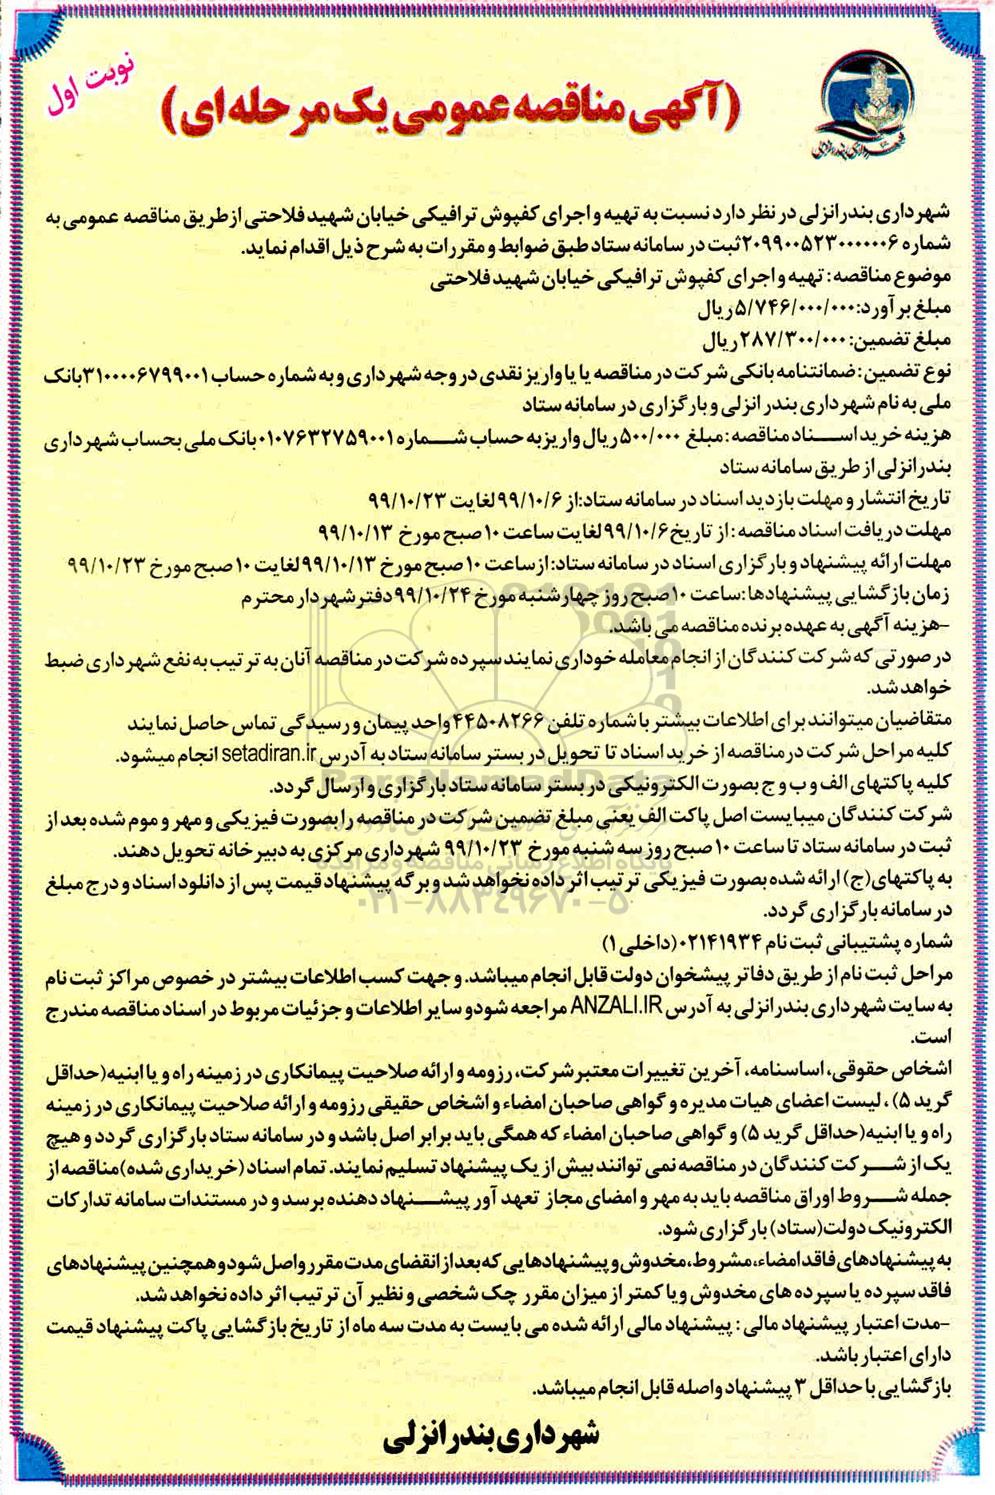 نوبت اول
(آگهی مناقصه عمومی یک مرحله ای)
شهرداری بندرانزلی در نظر دارد نسبت به تهیه و اجرای کفپوش ترافیکی خیابان شهید فلاحتی از طریق مناقصه عمومی به
شماره ۲۰۹۹۰۰۵۲۳۰۰۰۰۰۰۶ ثبت در سامانه ستاد طبق ضوابط و مقررات به شرح ذیل اقدام نماید.
موضوع مناقصه: تهیه و اجرای کفپوش ترافیکی خیابان شهید فلاحتی
مبلغ برآورد: ۵/۷۴۶/۰۰۰/۰۰۰ ریال
مبلغ تضمین: ۲۸۷/۳۰۰/۰۰۰ ریال
نوع تضمین: ضمانتنامه بانکی شرکت در مناقصه یا یا واریز نقدی در وجه شهرداری و به شماره حساب ۳۱۰۰۰۰۶۷۹۹۰۰۱ بانک
ملی به نام شهرداری بندر انزلی و بارگزاری در سامانه ستاد
هزینه خرید اسـناد مناقصه: مبلغ ۵۰۰/۰۰۰ ریال واریز به حساب شـماره ۰۱۰۷۶۳۲۷۵۹۰۰۱ بانک ملی بحساب شهرداری
بندرانزلی از طریق سامانه ستاد
تاریخ انتشار و مهلت بازدید اسناد در سامانه ستاد: از ۹۹/۱۰/۶ لغایت ۹۹/۱۰/۲۳
مهلت دریافت اسناد مناقصه: از تاریخ ۹۹/۱۰/۶ لغایت ساعت ۱۰ صبح مورخ ۹۹/۱۰/۱۳
مهلت ارائه پیشنهاد و بارگزاری اسناد در سامانه ستاد: از ساعت ۱۰ صبح مورخ ۹۹/۱۰/۱۳ لغایت ۱۰ صبح مورخ ۹۹/۱۰/۲۳
زمان بازگشایی پیشنهادها: ساعت ۱۰ صبح روز چهارشنبه مورخ ۹۹/۱۰/۲۴ دفتر شهردار محترم
-هزینه آگهی به عهده برنده مناقصه می باشد.
در صورتی که شرکت کنندگان از انجام معامله خوداری نمایند سپرده شرکت در مناقصه آنان به ترتیب به نفع شهرداری ضبط
خواهد شد.
متقاضیان میتوانند برای اطلاعات بیشتر با شماره تلفن ۴۴۵۰۸۲۶۶ واحد پیمان و رسیدگی تماس حاصل نمایند
کلیه مراحل شرکت در مناقصه از خرید اسناد تا تحویل در بستر سامانه ستاد به آدرس setadiran.ir انجام میشود.
کلیه پاکتهای الف و ب و ج بصورت الکترونیکی در بستر سامانه ستاد بارگزاری و ارسال گردد.
شرکت کنندگان میبایست اصل پاکت الف یعنی مبلغ تضمین شرکت در مناقصه را بصورت فیزیکی و مهر و موم شده بعد از
ثبت در سامانه ستاد تا ساعت ۱۰ صبح روز سه شنبه مورخ ۹۹/۱۰/۲۳ شهرداری مرکزی به دبیرخانه تحویل دهند.
به پاکتهای (ج) ارائه شده بصورت فیزیکی ترتیب اثر داده نخواهد شد و برگه پیشنهاد قیمت پس از دانلود اسناد و درج مبلغ
در سامانه بارگزاری گردد.
شماره پشتیبانی ثبت نام ۰۲۱۴۱۹۳۴ (داخلی ۱)
مراحل ثبت نام از طریق دفاتر پیشخوان دولت قابل انجام میباشد. و جهت کسب اطلاعات بیشتر در خصوص مراکز ثبت نام
به سایت شهرداری بندرانزلی به آدرس ANZALI.IR مراجعه شود و سایر اطلاعات و جزئیات مربوط در اسناد مناقصه مندرج
است.
اشخاص حقوقی، اساسنامه، آخرین تغییرات معتبر شرکت، رزومه و ارائه صلاحیت پیمانکاری در زمینه راه و یا ابنیه (حداقل
گرید ۵)، لیست اعضای هیات مدیره و گواهی صاحبان امضاء و اشخاص حقیقی رزومه و ارائه صلاحیت پیمانکاری در زمینه
راه و یا ابنیه (حداقل گرید ۵) و گواهی صاحبان امضاء که همگی باید برابر اصل باشد و در سامانه ستاد بارگزاری گردد و هیچ
یک از شـرکت کنندگان در مناقصه نمی توانند بیش از یک پیشنهاد تسلیم نمایند. تمام اسناد (خریداری شده) مناقصه از
جمله شـروط اوراق مناقصه باید به مهر و امضای مجاز تعهد آور پیشـنهاد دهنده برسد و در مستندات سامانه تدارکات
الکترونیک دولت (ستاد) بارگزاری شود.
به پیشنهادهای فاقد امضاء، مشروط، مخدوش و پیشنهادهایی که بعد از انقضای مدت مقرر واصل شود و همچنین پیشنهادهای
فاقد سپرده یا سپرده های مخدوش ویا کمتر از میزان مقرر چک شخصی و نظیر آن ترتیب اثر داده نخواهد شد.
-مدت اعتبار پیشنهاد مالی: پیشنهاد مالی ارائه شده می بایست به مدت سه ماه از تاریخ بازگشایی پاکت پیشنهاد قیمت
دارای اعتبار باشد.
بازگشایی با حداقل ۳ پیشنهاد واصله قابل انجام میباشد.
شهرداری بندرانزلی
ParsNamadData
پایگاه اطلاع رسانی مناقصه و مزایده
۰۲۱-۸۸۳۴۹۶۷۰-۵